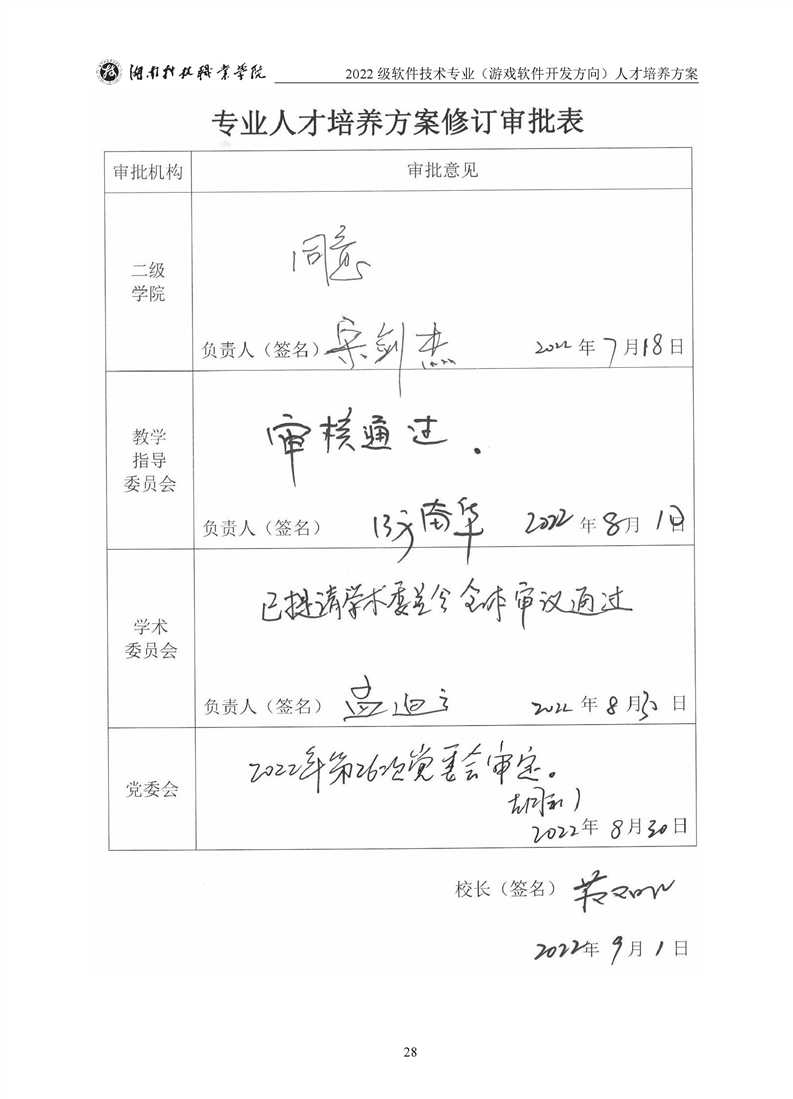 湖南科技职业学院 2022 级软件技术专业（游戏软件开发方向）人才培养方案
专业人才培养方案修订审批表
审批机构 审批意见
二级
学院
同意
负责人（签名）宋剑杰 2022 年 7 月 18 日
教学
指导
委员会
审核通过。
负责人（签名） 南华 2022 年 8 月 1 日
学术
委员会
已提请学术委员会全体审议通过
负责人（签名） 孟迪 2022 年 8 月 30 日
党委会
2022年第26次党委会审定。
2022 年 8 月 30 日
校长（签名）
2022 年 9 月 1 日
28